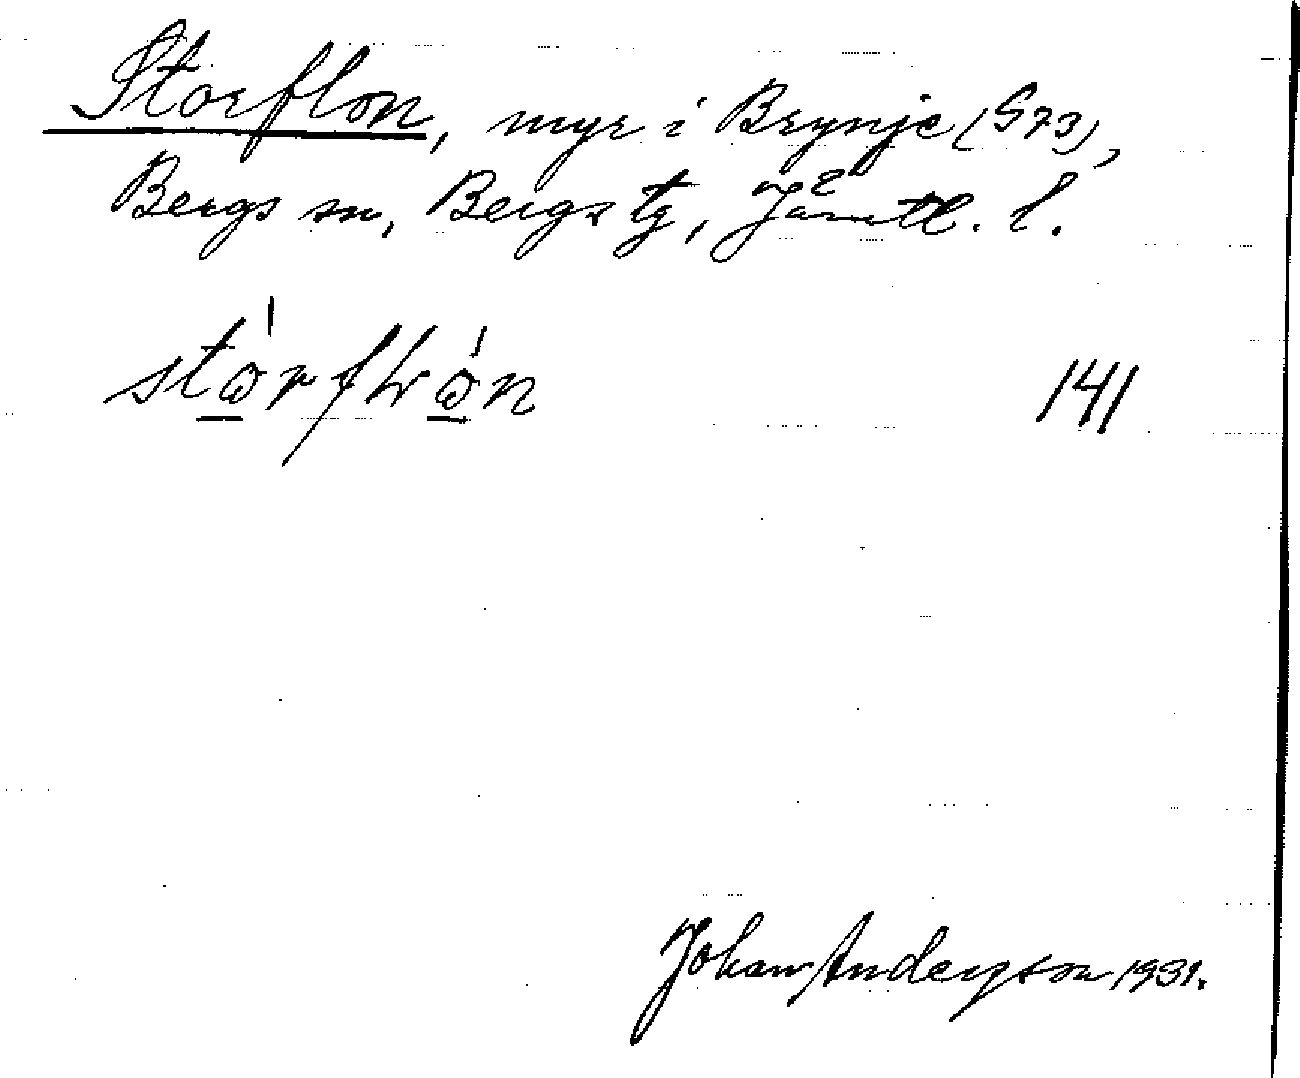 Storflon, myr i Brynje (S73),
Bergs sn, Bergs tg, Jämtl. l.
141
Johan Anderson 1931.